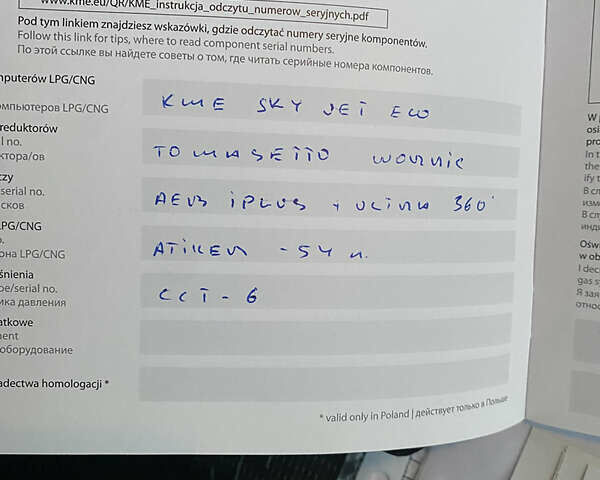 www.kme.eu/QR/KME_instrukcja_odczytu_numerow_seryjnych.pdf
Pod tym linkiem znajdziesz wskazówki, gdzie odczytać numery seryjne komponentów.
Follow this link for tips, where to read component serial numbers.
По этой ссылке вы найдете советы о том, где читать серийные номера компонентов.
mputerów LPG/CNG
омпьютеров LPG/CNG
KME SKY JET ECO
reduktorów
l no.
ктора/ов
TOMASETTO
czy
serial no.
сков
AEB IPLUS + ULTRA 360°
LPG/CNG
o.
она LPG/CNG
ATIKER - 54 л.
śnienia
pe/serial no.
ика давления
CCT - 6
atkowe
ment
оборудование
adectwa homologacji *
* valid only in Poland | действует только в Польше